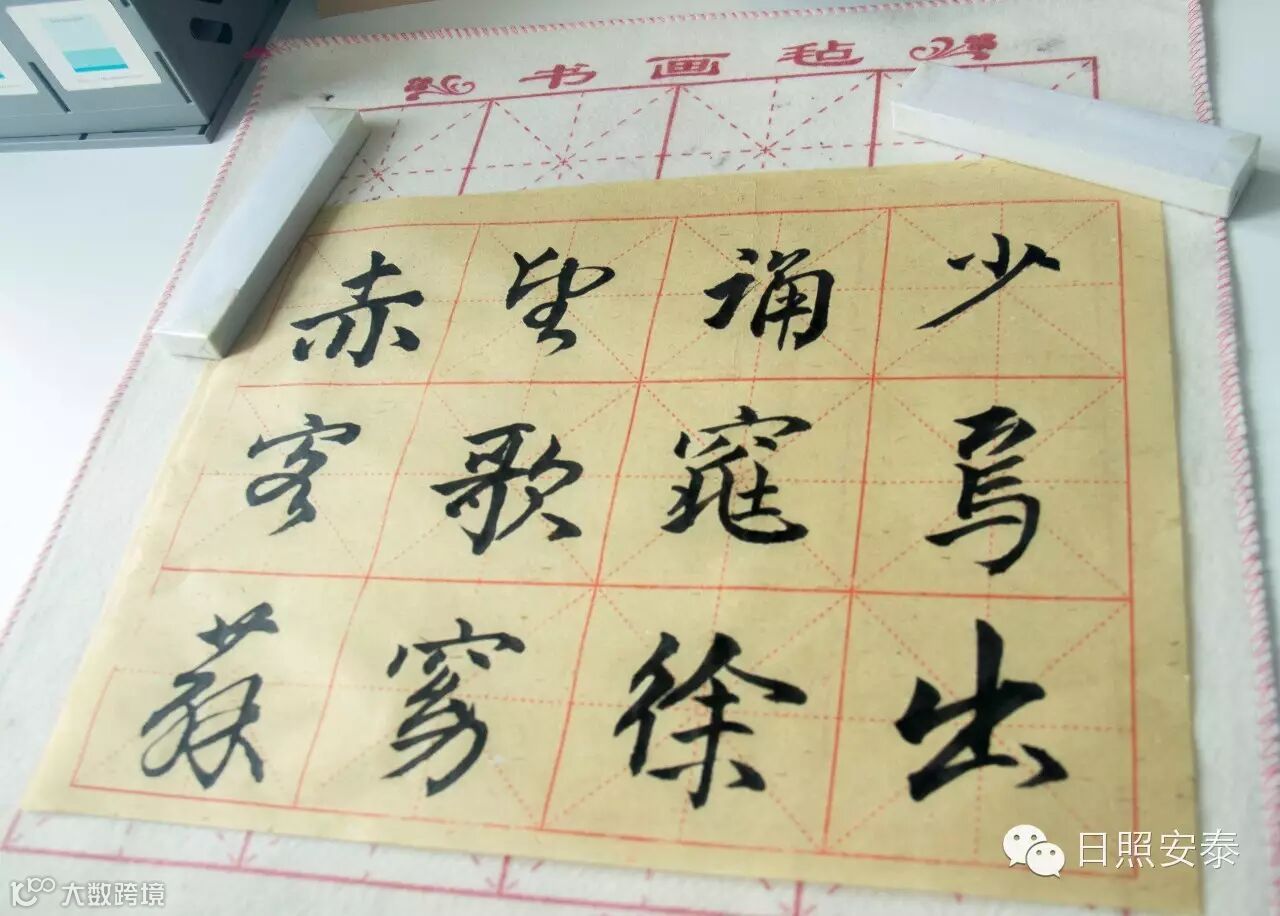 书画毡
赤望诵少
客歌窕焉
蘇窈徐出
日照安泰
大数跨境